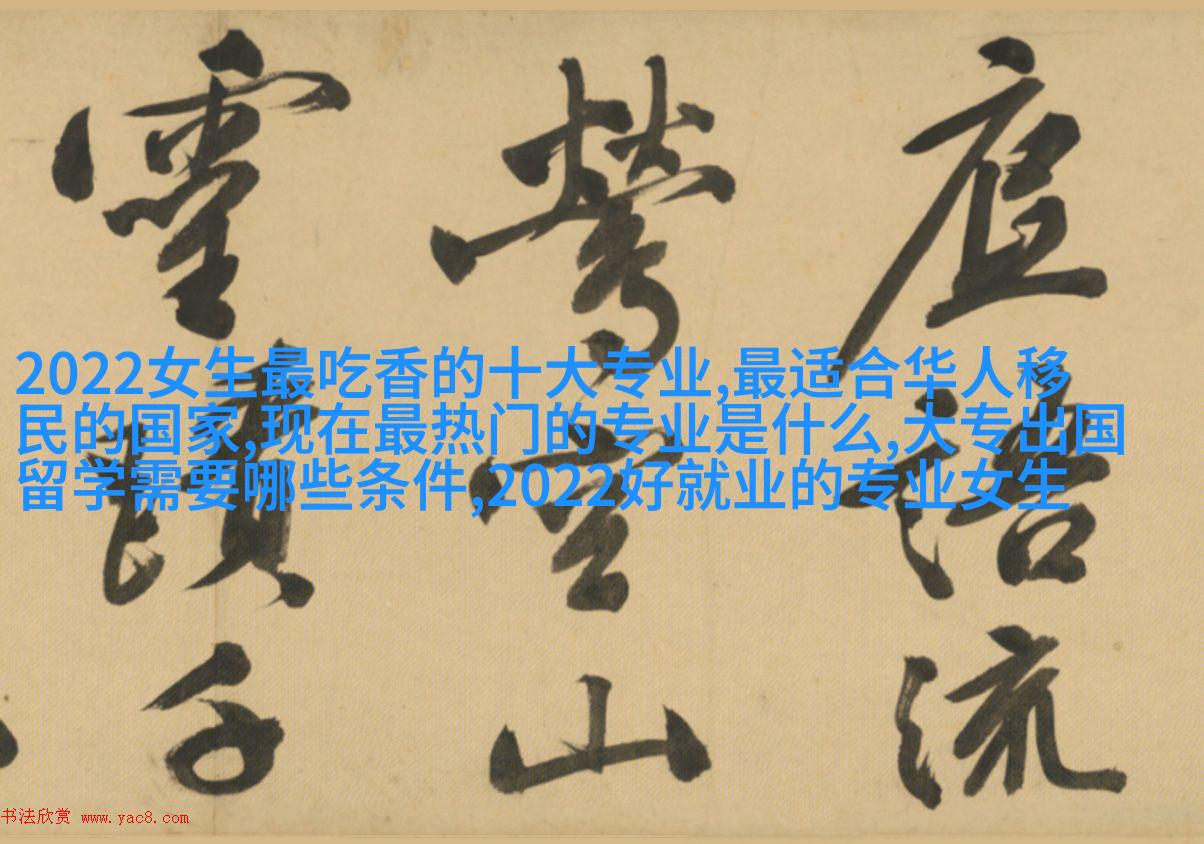 2022女生最吃香的十大专业,最适合华人移
民的国家,现在最热门的专业是什么,大专出国
留学需要哪些条件,2022好就业的专业女生
語流
鶯空山
千
书法欣赏 www.yac8.com